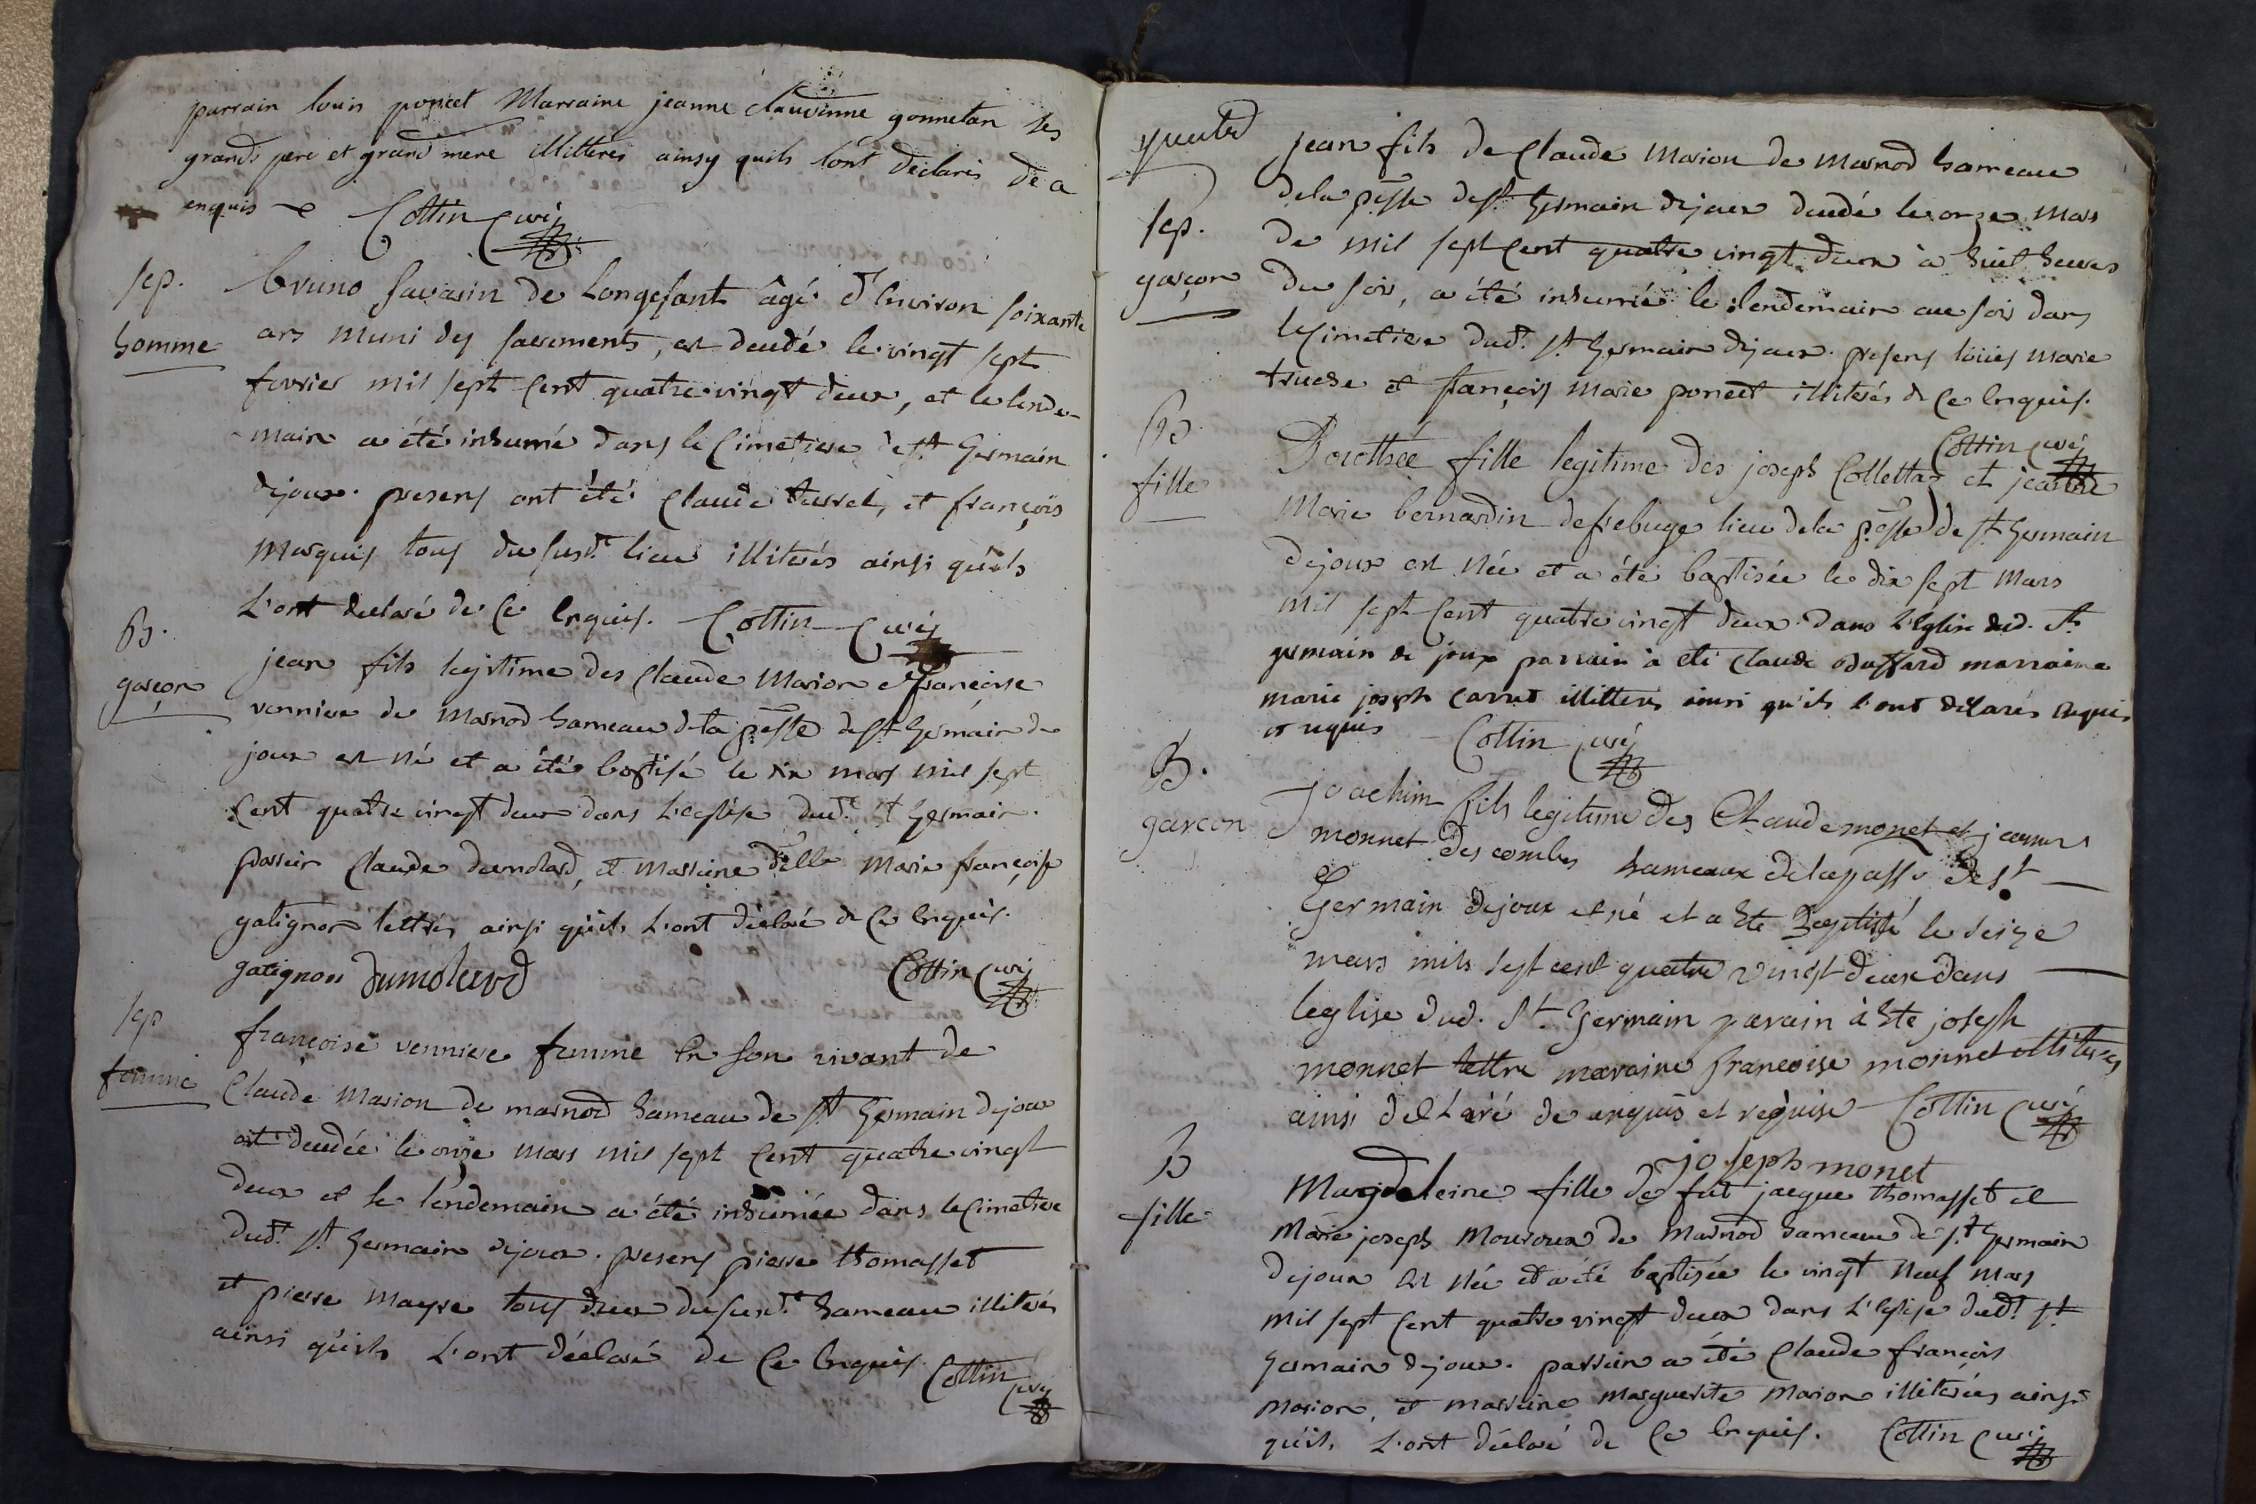 parrain louis poncet Marraine jeanne claudinne gonnetan ses
grands pere et grand mere illitterés ainsy quils lont declarés de a
enquis Cottin curé
sep.
homme
bruno savarin de Longefant âgé d'Environ soixante
ans muni des sacrements, est decedé le vingt sept
fevrier mil sept cent quatre vingt deux, et le lende-
main a été inhumé dans le Cimetiere de st Germain
dejoux. presens ont été Claude turrel, et françois
Marquis tous du susdt lieu illiterés ainsi qu'ils
L'ont declaré de Ce Enquis. Cottin Curé
B.
garçon
jean fils legitime des Claude Marion et françoise
venniere de Marnod hameau de la psse de st Germain de
joux est né et a été baptisé le dix mars mil sept
Cent quatre vingt deux dans L'eglise dudt st Germain.
parrain Claude dumolard, et marraine dlle Marie françoise
gatignon lettrés ainsi qu'ils L'ont déclaré de Ce Enquis.
gatignon Dumolard Cottin Curé
sep
femme
françoise venniere femme En son vivant de
Claude Marion de marnod hameau de st Germain dejoux
est decedée le onze mars mil sept Cent quatre vingt
deux et le lendemain a été inhumée dans le Cimetiere
dudt st Germain dejoux. presens pierre thomasset
et pierre mayre tous deux du susdt hameau illiterés
ainsi qu'ils L'ont déclaré de Ce Enquis. Cottin curé
sep.
garçon
jean fils de Claude Marion de Marnod hameau
dela psse de st Germain dejoux decedé le onze Mars
de mil sept Cent quatre vingt deux à huit heures
du soir, a été inhumé le lendemain au soir dans
le Cimetiere dudt st Germain dejoux. presens loüis marie
truche et françois marie poncet illiterés de Ce Enquis.
Cottin curé
B
fille
Dorothée fille legitime des joseph Collettaz et jeanne
Marie bernardin de frebuge lieu dela psse de st Germain
dejoux est Née et a été baptisée le dix sept Mars
Mil sept Cent quatre vingt deux dans L'Eglise dud. St
germain de joux parrain à eté Claude Dussard marraine
marie joseph Carret illitterés ainsi qu'ils l'ont declarés enquis
et requis Cottin Curé
B.
garcon
joachim fils legitime des Claude monet et jeanne
monnet des combes hameaux delapasse de st
Germain dejoux et né et a Ete Baptissé le seize
mars mils sept cent quatre vingt deux dans
leglise dud. St. Germain parain à Ete joseph
monnet lettre maraine francoise monnet illiteres
ainsi declaré de enquis et requise Cottin Curé
joseph monet
B
fille
Magdeleine fille de fut jacque thomasset et
Marie joseph Mouroux de Marnod hameau de st Germain
dejoux est Née et a été baptisée le vingt Neuf Mars
mil sept Cent quatre vingt deux dans L'Eglise dudt st
Germain dejoux. parrain a été Claude françois
Marion, et marraine marguerite Marion illiterés ainsi
qu'ils L'ont déclaré de Ce Enquis. Cottin curé